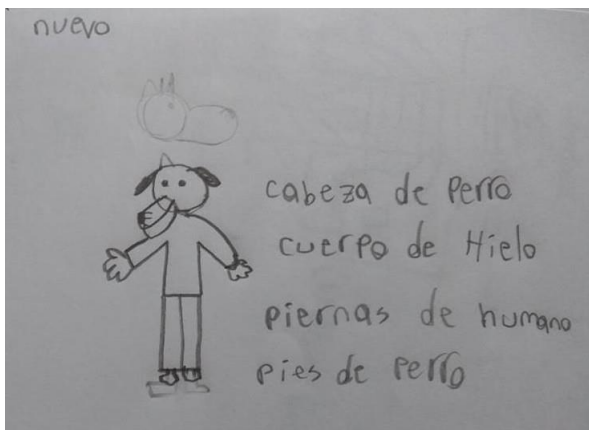 nuevo
cabeza de perro
cuerpo de Hielo
piernas de humano
pies de perro